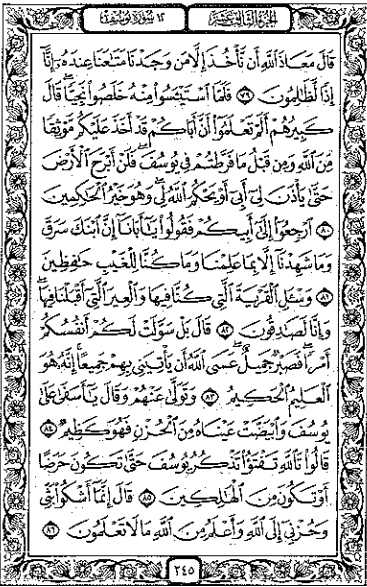 الجزء الثالث عشر ١٢ سورة يوسف
قَالَ مَعَاذَ ٱللَّهِ أَن نَّأْخُذَ إِلَّا مَن وَجَدْنَا مَتَٰعَنَا عِندَهُۥٓ إِنَّآ
إِذًا لَّظَٰلِمُونَ ٧٩ فَلَمَّا ٱسْتَيْـَٔسُوا۟ مِنْهُ خَلَصُوا۟ نَجِيًّا ۖ قَالَ
كَبِيرُهُمْ أَلَمْ تَعْلَمُوٓا۟ أَنَّ أَبَاكُمْ قَدْ أَخَذَ عَلَيْكُم مَّوْثِقًا
مِّنَ ٱللَّهِ وَمِن قَبْلُ مَا فَرَّطتُمْ فِى يُوسُفَ ۖ فَلَنْ أَبْرَحَ ٱلْأَرْضَ
حَتَّىٰ يَأْذَنَ لِىٓ أَبِىٓ أَوْ يَحْكُمَ ٱللَّهُ لِى ۖ وَهُوَ خَيْرُ ٱلْحَٰكِمِينَ
٨٠ ٱرْجِعُوٓا۟ إِلَىٰٓ أَبِيكُمْ فَقُولُوا۟ يَٰٓأَبَانَآ إِنَّ ٱبْنَكَ سَرَقَ
وَمَا شَهِدْنَآ إِلَّا بِمَا عَلِمْنَا وَمَا كُنَّا لِلْغَيْبِ حَٰفِظِينَ
٨١ وَسْـَٔلِ ٱلْقَرْيَةَ ٱلَّتِى كُنَّا فِيهَا وَٱلْعِيرَ ٱلَّتِىٓ أَقْبَلْنَا فِيهَا ۖ
وَإِنَّا لَصَٰدِقُونَ ٨٢ قَالَ بَلْ سَوَّلَتْ لَكُمْ أَنفُسُكُمْ
أَمْرًا ۖ فَصَبْرٌ جَمِيلٌ ۖ عَسَى ٱللَّهُ أَن يَأْتِيَنِى بِهِمْ جَمِيعًا ۚ إِنَّهُۥ هُوَ
ٱلْعَلِيمُ ٱلْحَكِيمُ ٨٣ وَتَوَلَّىٰ عَنْهُمْ وَقَالَ يَٰٓأَسَفَىٰ عَلَىٰ
يُوسُفَ وَٱبْيَضَّتْ عَيْنَاهُ مِنَ ٱلْحُزْنِ فَهُوَ كَظِيمٌ ٨٤
قَالُوا۟ تَٱللَّهِ تَفْتَؤُا۟ تَذْكُرُ يُوسُفَ حَتَّىٰ تَكُونَ حَرَضًا
أَوْ تَكُونَ مِنَ ٱلْهَٰلِكِينَ ٨٥ قَالَ إِنَّمَآ أَشْكُوا۟ بَثِّى
وَحُزْنِىٓ إِلَى ٱللَّهِ وَأَعْلَمُ مِنَ ٱللَّهِ مَا لَا تَعْلَمُونَ ٨٦
٢٤٥